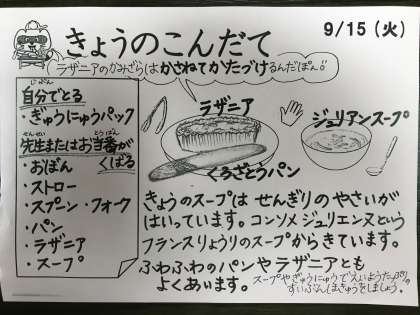 9/15(火)
きょうのこんだて
ラザニアのかみざらはかさねてかたづけるんだぽん!!
自分でとる
じぶん
・ぎゅうにゅうパック
先生またはお当番が
せんせい とうばん
くばる
・おぼん
・ストロー
・スプーン・フォーク
・パン
・ラザニア
・スープ
ラザニア
くろざとうパン
ジュリアンスープ
きょうのスープは せんぎりのやさいが
はいっています。コンソメジュリエンヌという
フランスりょうりのスープからきています。
ふわふわのパンやラザニアとも
よくあいます。
スープやぎゅうにゅうでえいようたっぷり
すいぶんほきゅうをしましょう。